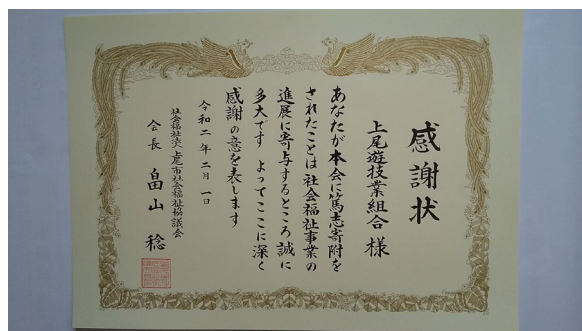 感謝状
上尾遊技業組合 様
あなたが本会に篤志寄附を
されたことは社会福祉事業の
進展に寄与するところ誠に
多大です よってここに深く
感謝の意を表します
令和二年二月一日
社会福祉法人上尾市社会福祉協議会
会長 畠山 稔